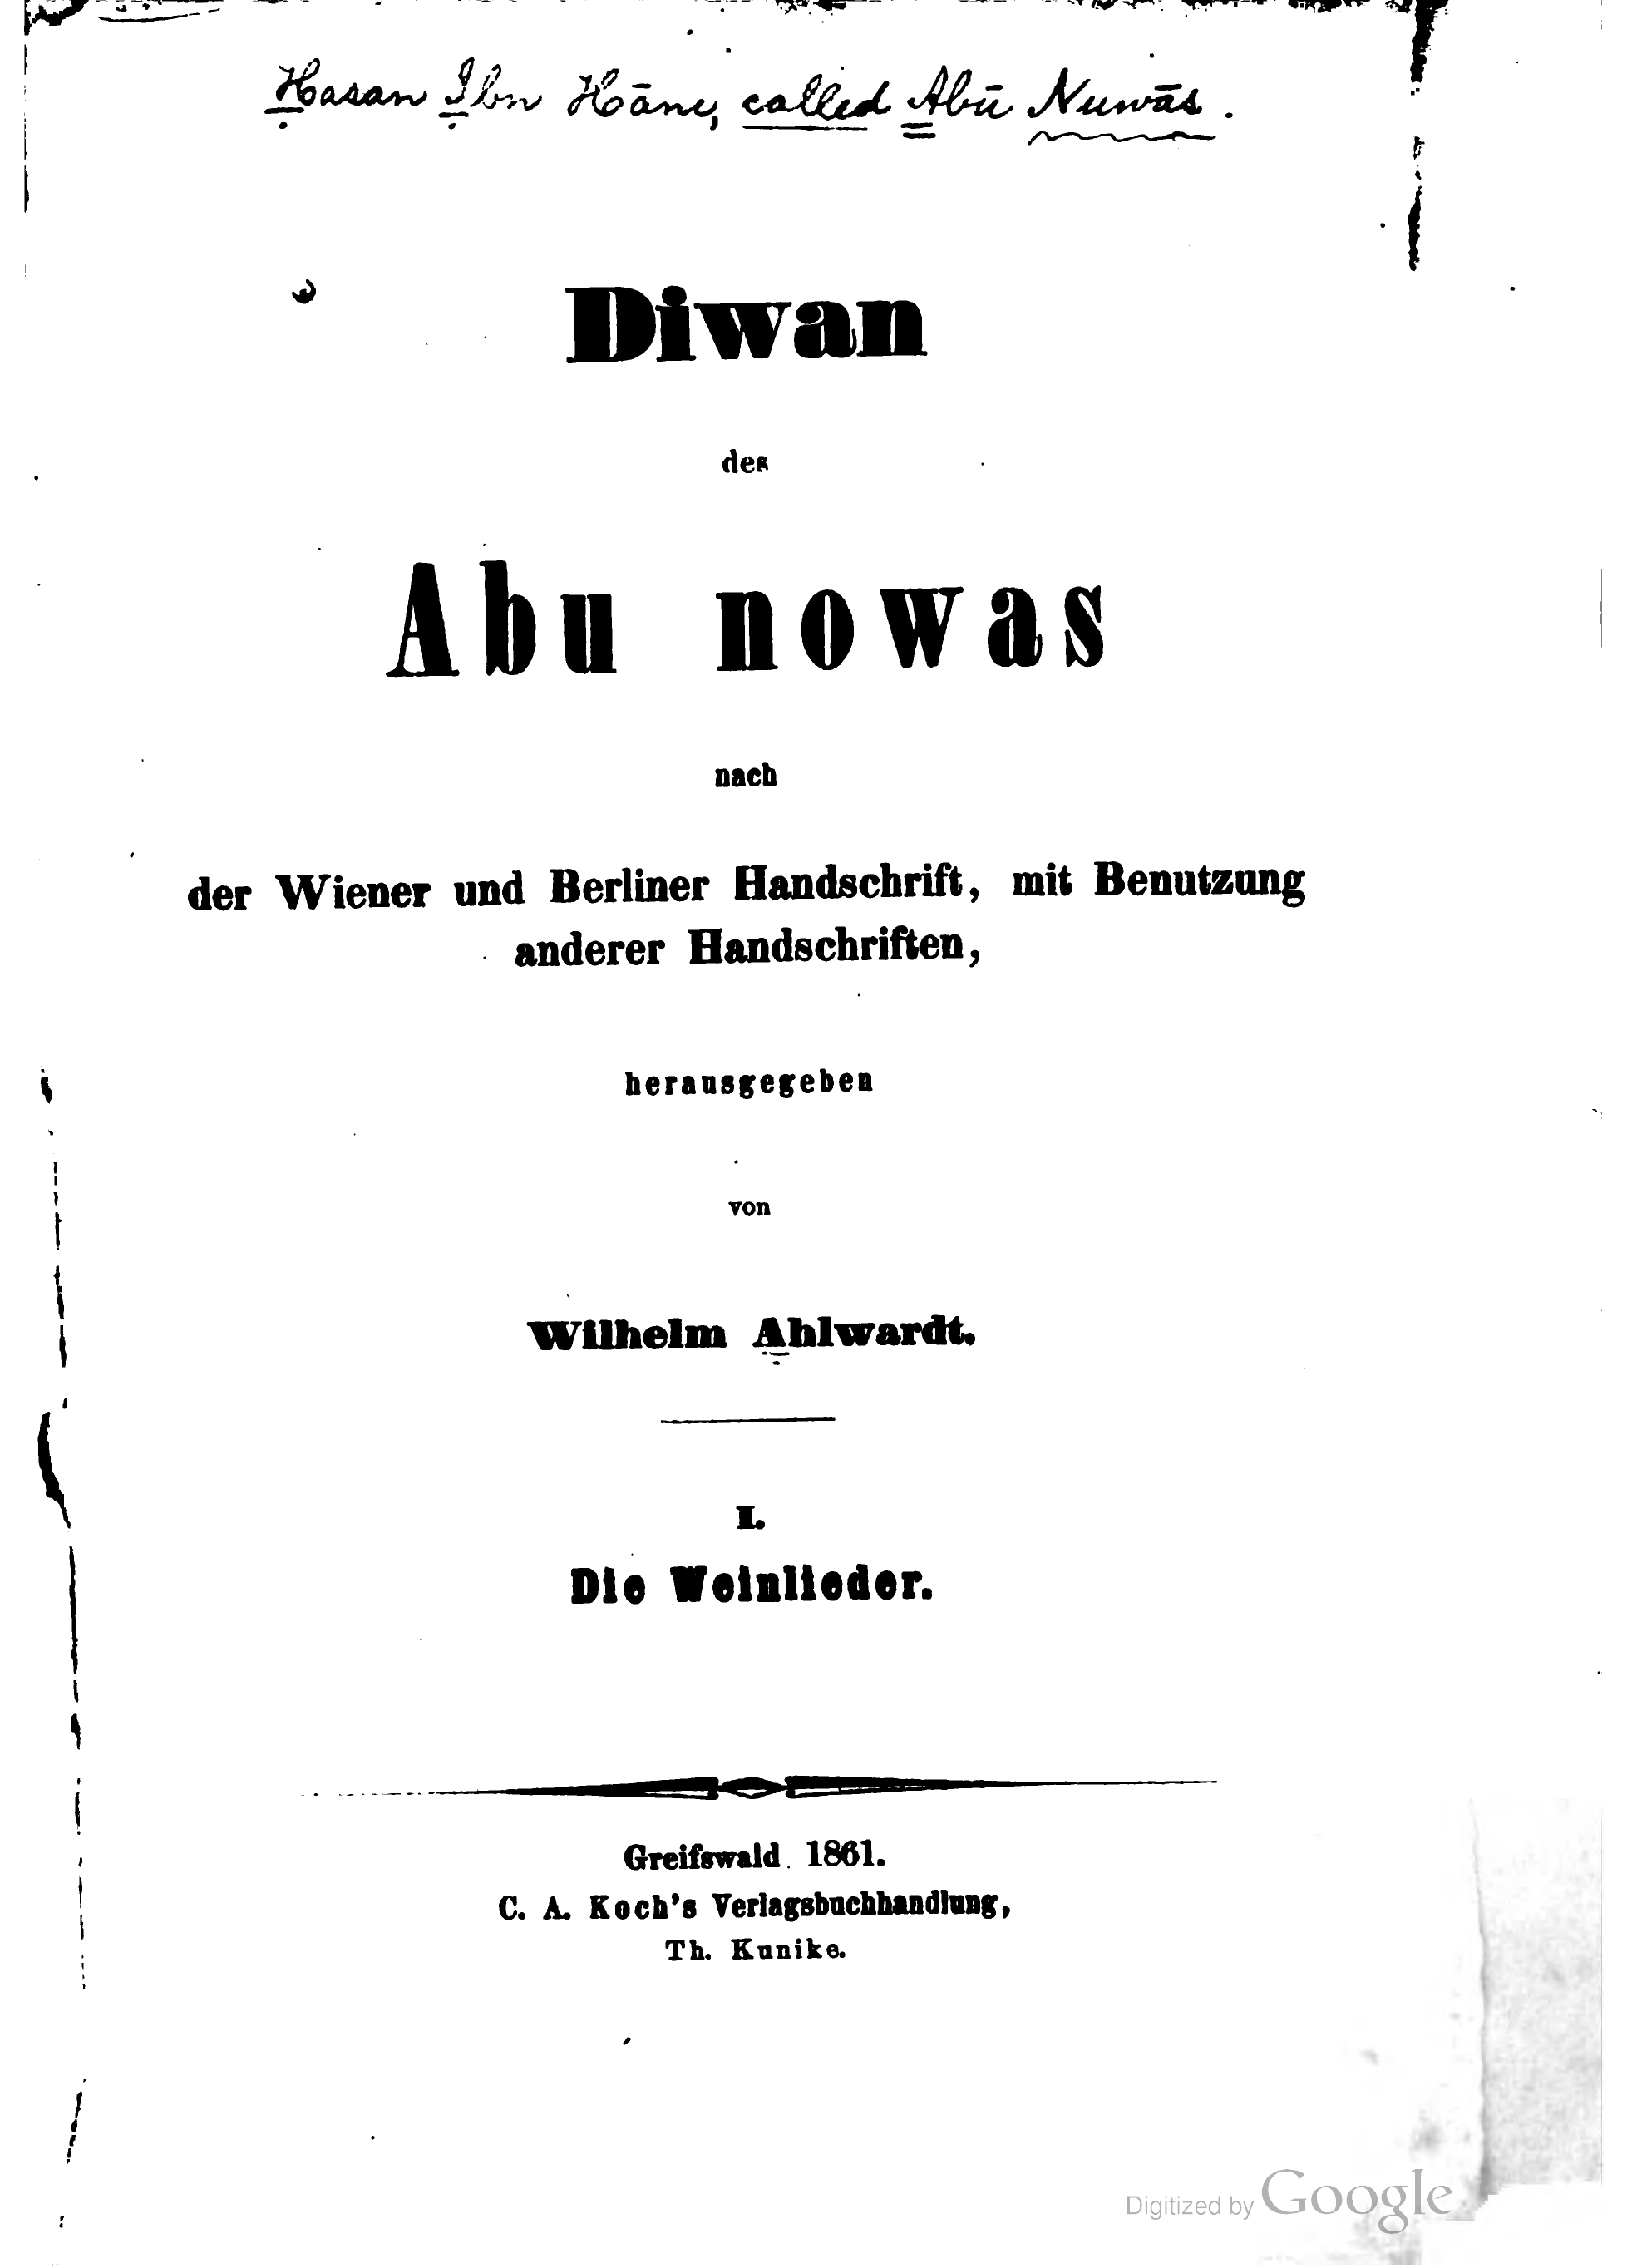 Hasan Ibn Hāni, called Abū Nuwās.
Diwan
des
Abu nowas
nach
der Wiener und Berliner Handschrift, mit Benutzung
anderer Handschriften,
herausgegeben
von
Wilhelm Ahlwardt.
I.
Die Weinlieder.
Greifswald 1861.
C. A. Koch's Verlagsbuchhandlung,
Th. Kunike.
Digitized by Google